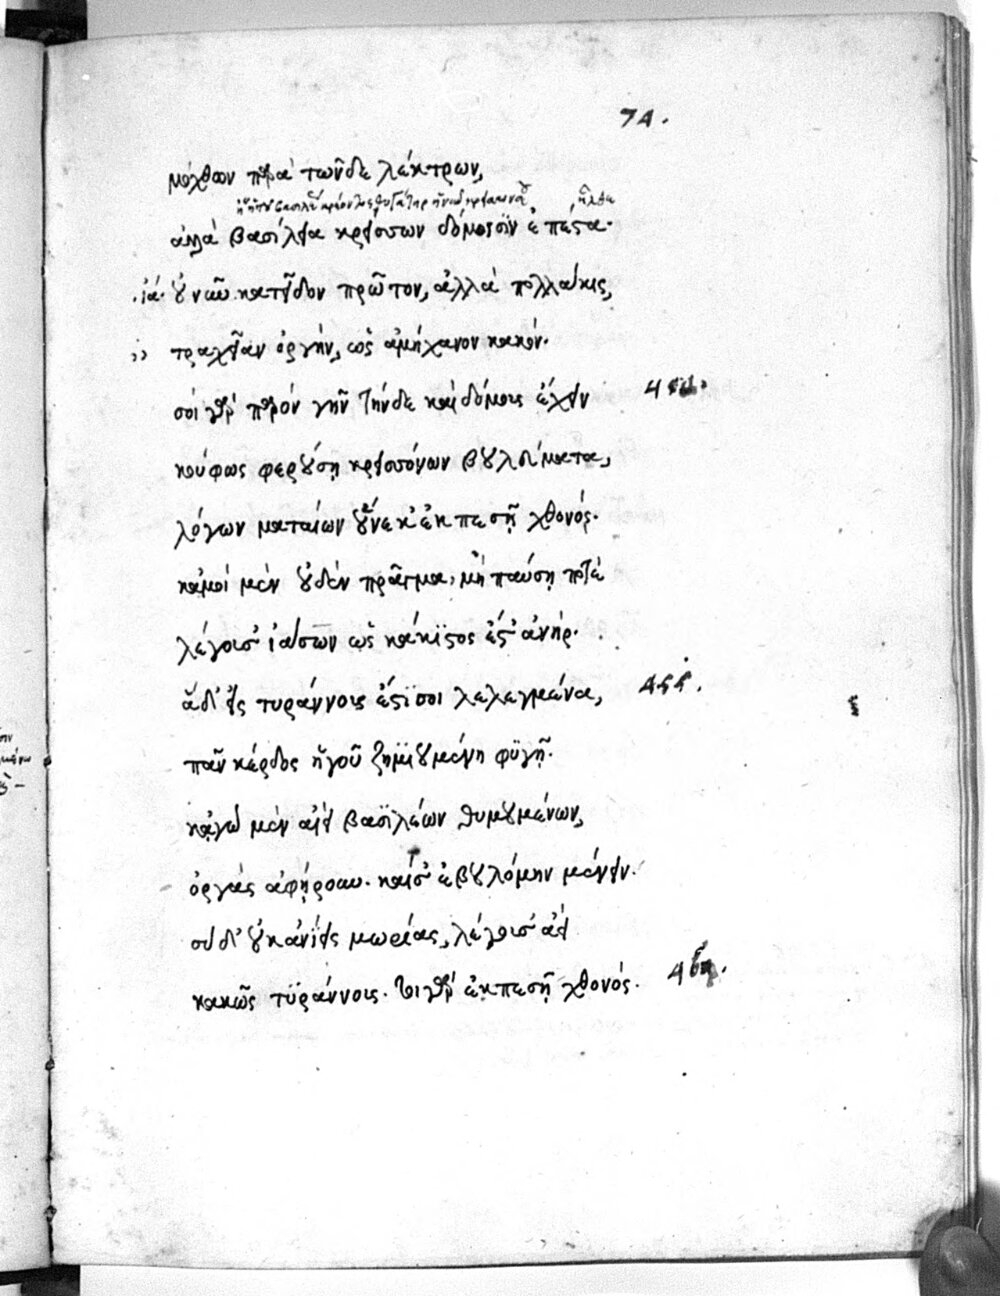 74.
μόχθων παρὰ τῶνδε λέκτρων,
ἀλλὰ βασίλεια κρείσσων δόμοισϊν ἐπέστα.
.ἰά. οὐ νῦν κατεῖδον πρῶτον, ἀλλὰ πολλάκις,
,, τραχεῖαν ὀργὴν, ὡς ἀμήχανον κακόν.
σοὶ γὰρ παρὸν γῆν τήνδε καὶ δόμους ἔχειν 450.
κούφως φερούσῃ κρεισσόνων βουλεύματα,
λόγων ματαίων οὕνεκ' ἐκπεσῇ χθονός.
κἀμοὶ μὲν οὐδὲν πρᾶγμα. μὴ παύσῃ ποτὲ
λέγουσ' ἰάσων ὡς κάκϊστος ἔστ' ἀνήρ.
ἃ δ' εἰς τυράννους ἐστί σοι λελεγμένα, 455.
πᾶν κέρδος ἡγοῦ ζημϊουμένη φϋγῇ.
κᾀγὼ μὲν αἰεὶ βασϊλέων θυμουμένων,
ὀργὰς ἀφῄρουν. καί σ' ἐβουλόμην μένειν.
σὺ δ' οὐκ ἀνίεις μωρίας, λέγουσ' ἀεὶ
κακῶς τϋράννους. τοιγὰρ ἐκπεσῇ χθονός. 460.